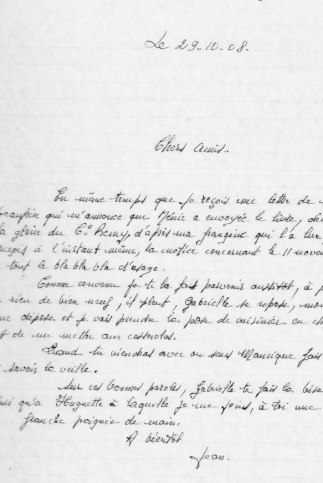 Le 29-10-08.
Chers Amis.
En même temps que je reçois une lettre de
qui m'annonce que Génie a envoyée le livre,
la gloire du Cᵈ Remy, d'après ma frangine qui l'a lue
reçois à l'instant même, la notice concernant le 11 novem
tout le bla bla bla d'usage.
Comme convenu je te la fais parvenir aussitôt, à p
rien de bien neuf, il pleut, Gabrielle se repose, mon
dépose et je vais prendre la pose de cuisinier en ch
et de me mettre aux casseroles.
Quand tu viendras avec ou sans Manrique fais
savoir la veille.
Sur ces bonnes paroles, Gabrielle te fais la bise
qu'a Huguette à laquelle je me joins, à toi une
franche poignée de main.
A bientôt
Jean.